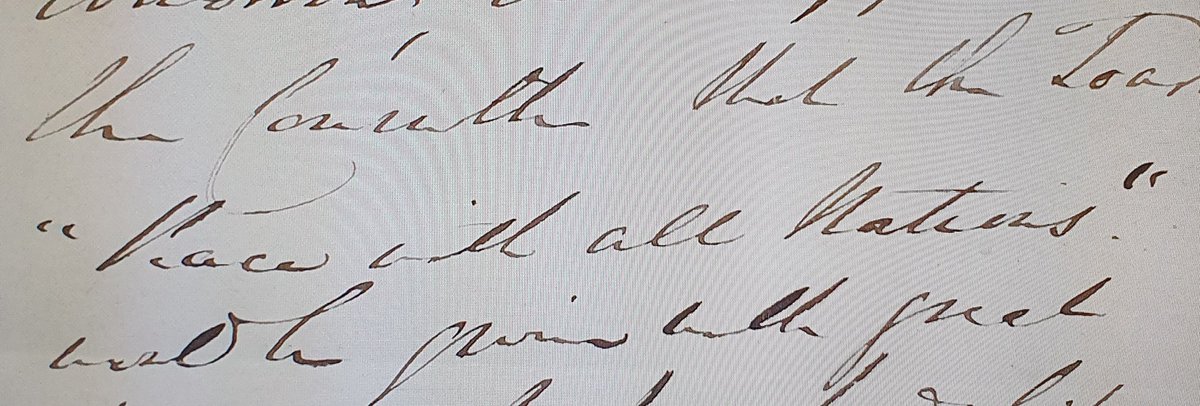 the Committee that the Toast
"Peace with all Nations."
would be given with great